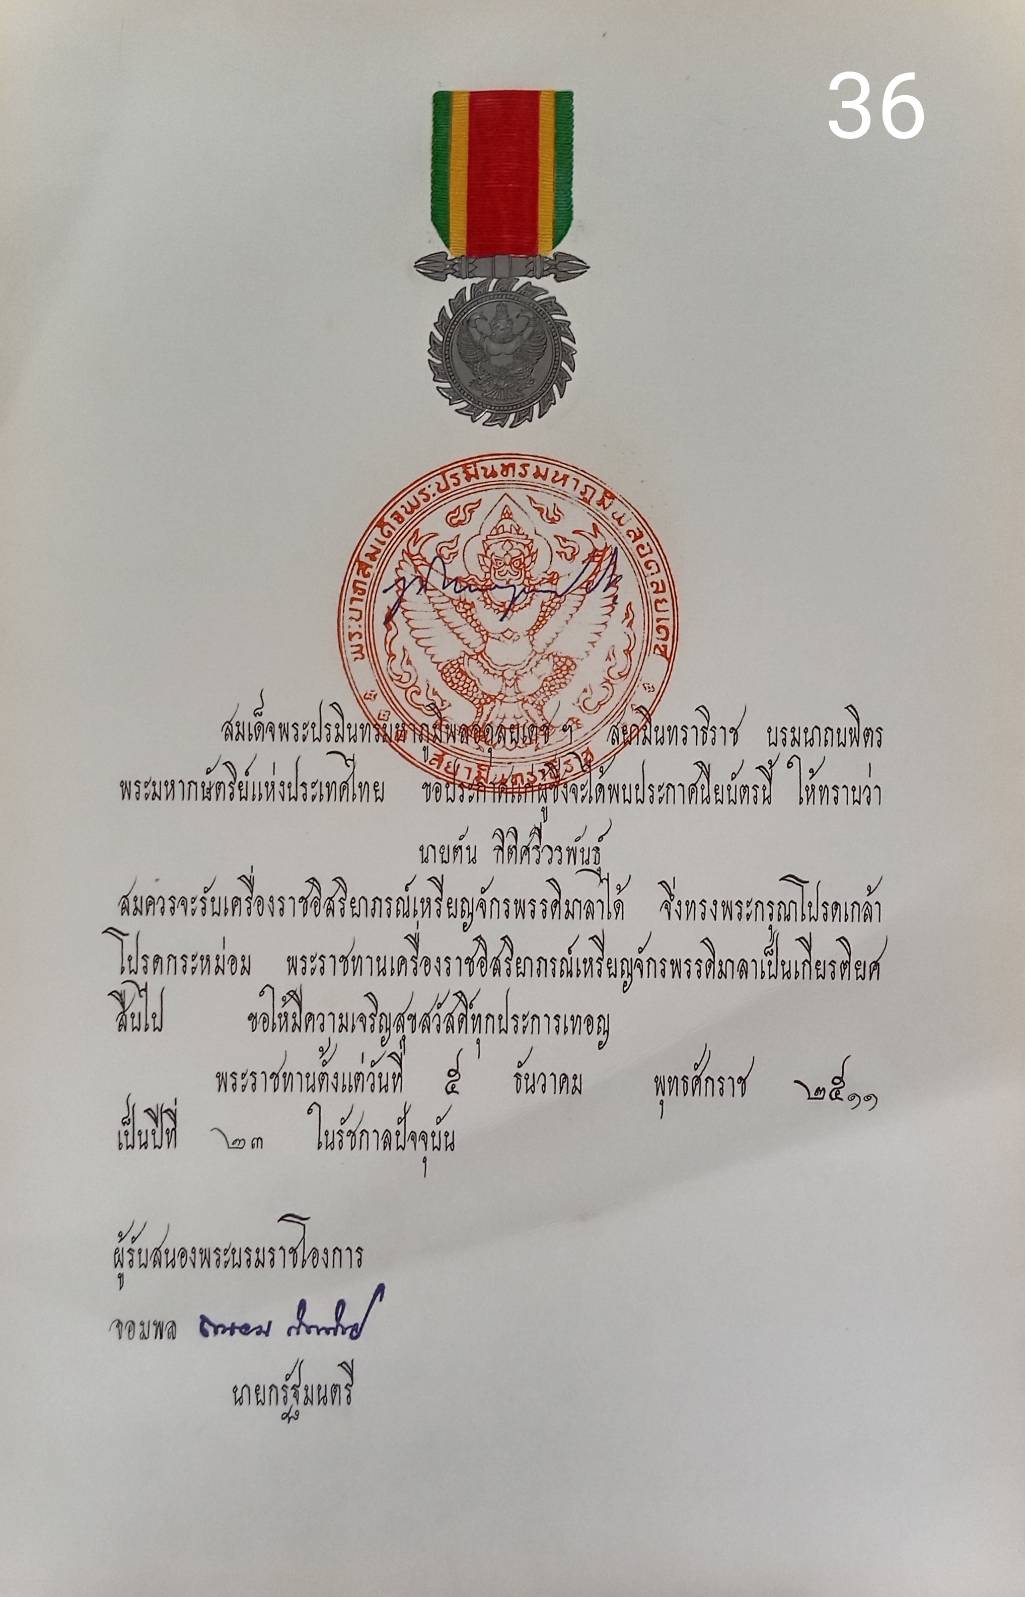 36
พระบาทสมเด็จพระปรมินทรมหาภูมิพลอดุลยเดช
สยามินทราธิราช
สมเด็จพระปรมินทรมหาภูมิพลอดุลยเดช ฯ สยามินทราธิราช บรมนาถบพิตร
พระมหากษัตริย์แห่งประเทศไทย ขอประกาศแก่ผู้ซึ่งจะได้พบประกาศนียบัตรนี้ ให้ทราบว่า
นายตัน กิติศรีวรพันธุ์
สมควรจะรับเครื่องราชอิสริยาภรณ์เหรียญจักรพรรดิมาลาได้ จึ่งทรงพระกรุณาโปรดเกล้า
โปรดกระหม่อม พระราชทานเครื่องราชอิสริยาภรณ์เหรียญจักรพรรดิมาลาเป็นเกียรติยศ
สืบไป ขอให้มีความเจริญสุขสวัสดิ์ทุกประการเทอญ
พระราชทานตั้งแต่วันที่ ๕ ธันวาคม พุทธศักราช ๒๕๑๑
เป็นปีที่ ๒๓ ในรัชกาลปัจจุบัน
ผู้รับสนองพระบรมราชโองการ
จอมพล ถนอม กิตติขจร
นายกรัฐมนตรี